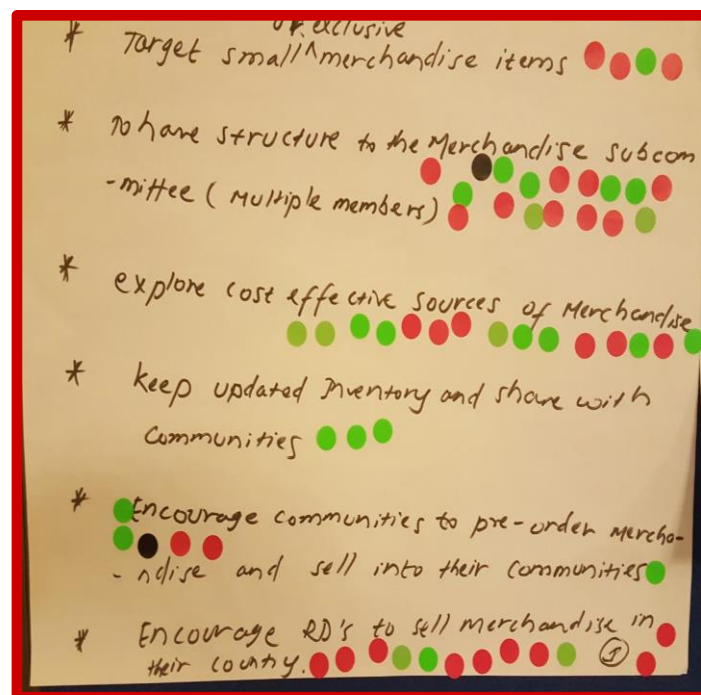 or exclusive
* Target small ^ merchandise items
* To have structure to the Merchandise subcom
-mittee ( Multiple members)
* explore cost effective sources of Merchandise
* Keep updated Inventory and share with
Communities
* Encourage communities to pre-order mercha-
-ndise and sell into their communities
* Encourage RD's to sell merchandise in
their county. 1